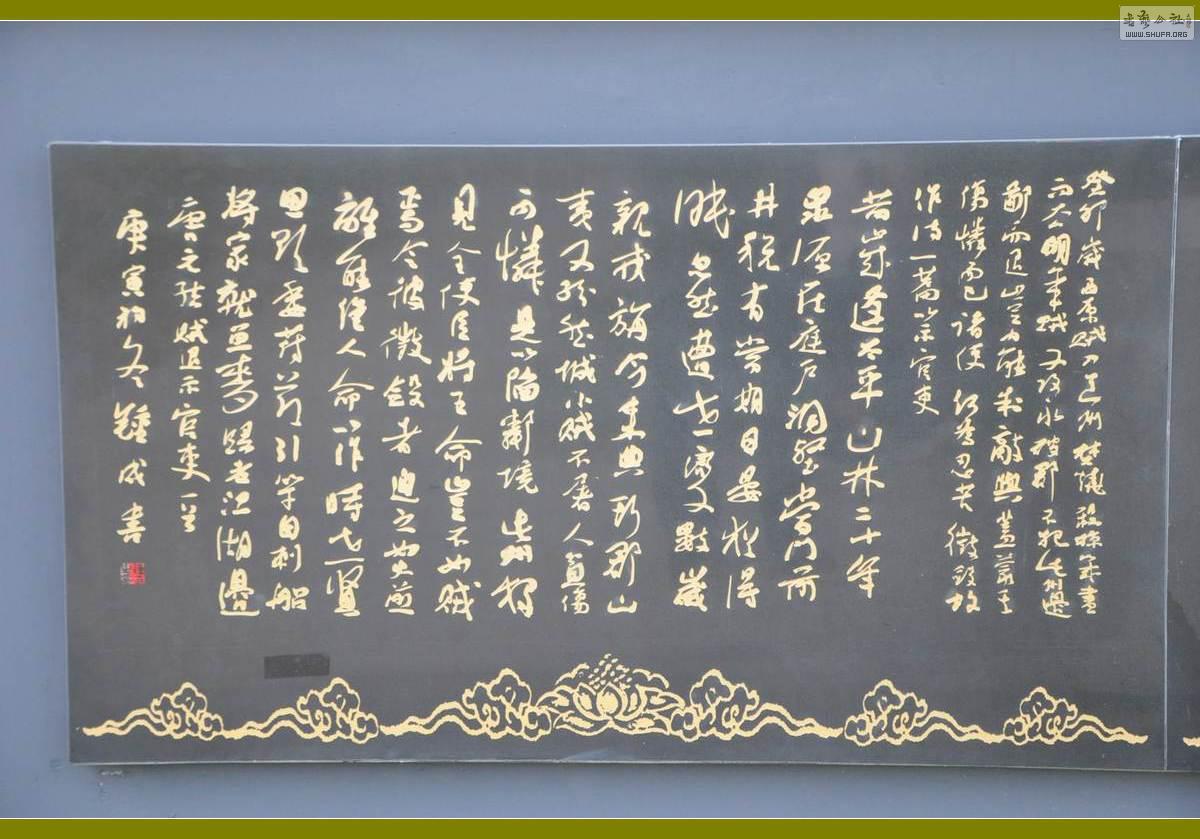 癸卯歲西原賊入道州焚燒殺掠幾盡
而去明年賊又攻永破邵不犯此州邊
鄙而退豈力能制敵與蓋蒙其
傷憐而已諸使何為忍苦徵斂故
作詩一篇以示官吏
昔歲逢太平山林二十年
泉源在庭戶洞壑當門前
井稅有常期日晏猶得
眠忽然遭世變數歲
親戎旃今來典斯郡山
夷又紛然城小賊不屠人貧傷
可憐是以陷鄰境此州獨
見全使臣將王命豈不如賊
焉今彼徵斂者迫之如火煎
誰能絕人命以作時世賢
思欲委符節引竿自刺船
將家就魚麥歸老江湖邊
唐元結賊退示官吏一首
庚寅初冬鍾成書
書藝公社
WWW.SHUFA.ORG